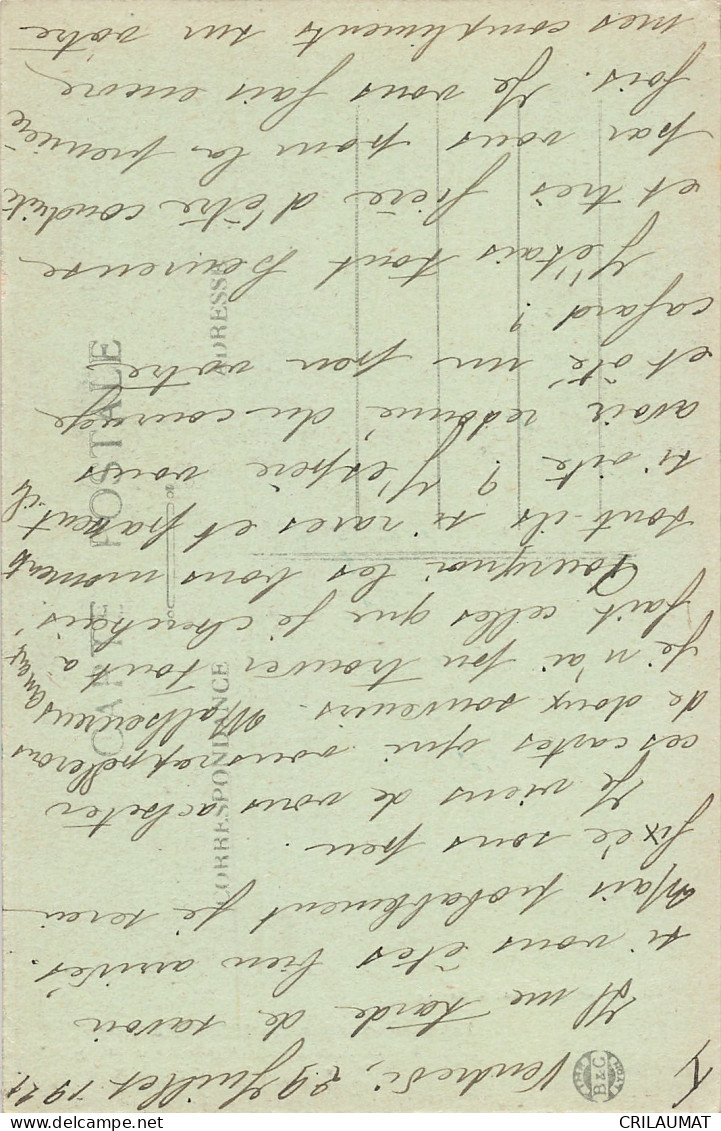 I
Vendredi, 29 Juillet 1921
Il me tarde de savoir
si vous êtes bien arrivés.
Mais probablement je serai
fixée sous peu.
Je viens de vous acheter
ces cartes qui vous rappellerons
de doux souvenirs. Malheureusement,
je n'ai pu trouver tout à
fait celles que je cherchais.
Pourquoi les bons moments
sont-ils si rares et passent-ils
si vite ? J'espère vous
avoir redonné du courage
et ôté un peu votre
cafard ?
J'étais tout heureuse
et très fière d'être conduite
par vous pour la première
fois. Je vous fais encore
mes compliments sur votre
CARTE POSTALE
CORRESPONDANCE
ADRESSE
B & C
CRILAUMAT